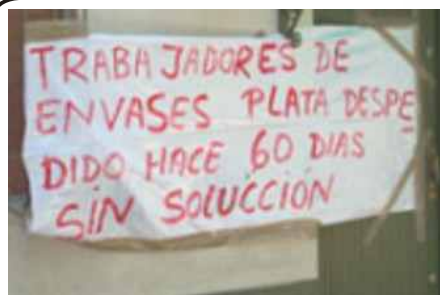 TRABAJADORES DE
ENVASES PLATA DESPE
DIDO HACE 60 DIAS
SIN SOLUCCIÓN